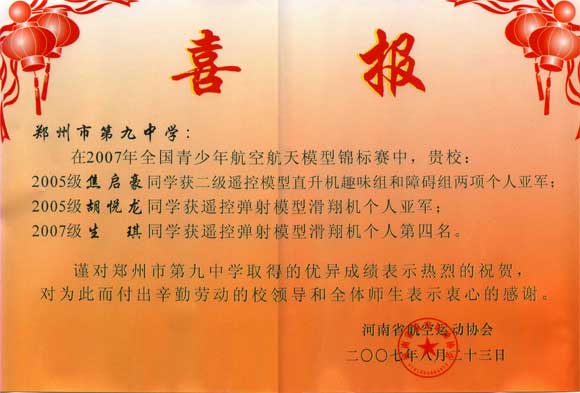 喜报
郑州市第九中学：
在2007年全国青少年航空航天模型锦标赛中，贵校：
2005级焦启豪同学获二级遥控模型直升机趣味组和障碍组两项个人亚军；
2005级胡悦龙同学获遥控弹射模型滑翔机个人亚军；
2007级生琪同学获遥控弹射模型滑翔机个人第四名。
谨对郑州市第九中学取得的优异成绩表示热烈的祝贺，
对为此而付出辛勤劳动的校领导和全体师生表示衷心的感谢。
河南省航空运动协会
二〇〇七年八月二十三日